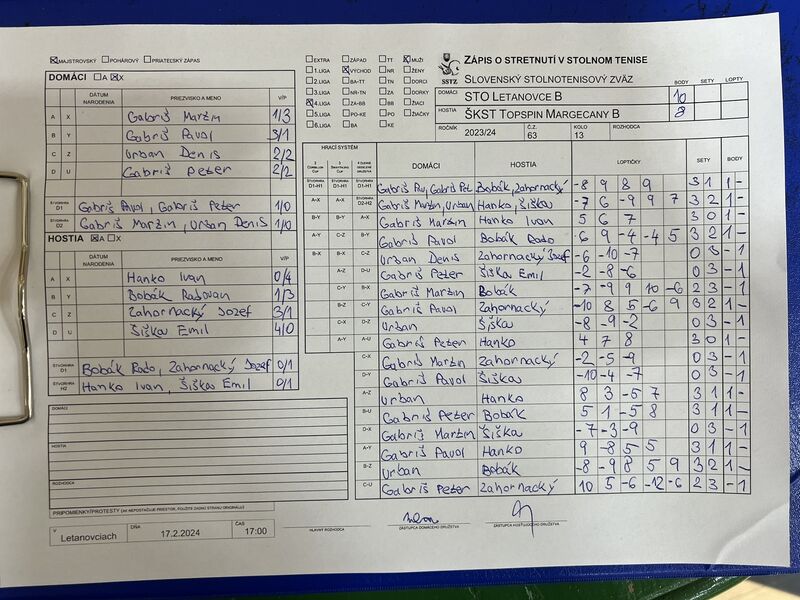 MAJSTROVSKÝ POHÁROVÝ PRIATEĽSKÝ ZÁPAS
DOMÁCI A X
DÁTUM NARODENIA PRIEZVISKO A MENO V/P
A X Gabriš Martin 1/3
B Y Gabriš Pavol 3/1
C Z Urban Denis 2/2
D U Gabriš Peter 2/2
ŠTVORHRA D1 Gabriš Pavol, Gabriš Peter 1/0
ŠTVORHRA D2 Gabriš Martin, Urban Denis 1/0
HOSTIA A X
DÁTUM NARODENIA PRIEZVISKO A MENO V/P
A X Hanko Ivan 0/4
B Y Bobák Radovan 1/3
C Z Zahornacký Jozef 3/1
D U Šiška Emil 4/0
ŠTVORHRA D1 Bobák Rado, Zahornacký Jozef 0/1
ŠTVORHRA H2 Hanko Ivan, Šiška Emil 0/1
DOMÁCI
HOSTIA
ROZHODCA
PRIPOMIENKY/PROTESTY (AK NEPOSTAČUJE PRIESTOR, POUŽITE ZADNÚ STRANU ORIGINÁLU)
V Letanovciach DŇA 17.2.2024 ČAS 17:00
EXTRA ZÁPAD TT MUŽI
1.LIGA VÝCHOD NR ŽENY
2.LIGA BA-TT TN DORCI
3.LIGA NR-TN ZA DORKY
4.LIGA ZA-BB BB ŽIACI
5.LIGA PO-KE PO ŽIAČKY
6.LIGA BA KE
SSTZ
ZÁPIS O STRETNUTÍ V STOLNOM TENISE
SLOVENSKÝ STOLNOTENISOVÝ ZVÄZ
BODY SETY LOPTY
DOMÁCI STO LETANOVCE B 10
HOSTIA ŠKST TOPSPIN MARGECANY B 8
ROČNÍK 2023/24 Č.Z. 63 KOLO 13 ROZHODCA
HRACÍ SYSTÉM DOMÁCI HOSTIA LOPTIČKY SETY BODY
ŠTVORHRA D1-H1 ŠTVORHRA D1-H1 ŠTVORHRA D1-H1 Gabriš Pav, Gabriš Pet Bobák, Zahornacký -8 9 8 9 3 1 1 -
A-X A-X ŠTVORHRA D2-H2 Gabriš Martin, Urban Hanko, Šiška -7 6 -9 9 7 3 2 1 -
B-Y B-Y A-X Gabriš Martin Hanko Ivan 5 6 7 3 0 1 -
A-Y C-Z B-Y Gabriš Pavol Bobák Rado 6 9 -4 -4 5 3 2 1 -
B-X B-X C-Z Urban Denis Zahornacký Jozef -6 -10 -7 0 3 - 1
A-Z D-U Gabriš Peter Šiška Emil -2 -8 -6 0 3 - 1
C-Y B-X Gabriš Martin Bobák -7 -9 9 10 -6 2 3 - 1
B-Z C-Y Gabriš Pavol Zahornacký -10 8 5 -6 9 3 2 1 -
C-X D-Z Urban Šiška -8 -9 -2 0 3 - 1
A-Y A-U Gabriš Peter Hanko 4 7 8 3 0 1 -
C-X Gabriš Martin Zahornacký -2 -5 -9 0 3 - 1
D-Y Gabriš Pavol Šiška -10 -4 -7 0 3 - 1
A-Z Urban Hanko 8 3 -5 7 3 1 1 -
B-U Gabriš Peter Bobák 5 1 -5 8 3 1 1 -
D-X Gabriš Martin Šiška -7 -3 -9 0 3 - 1
A-Y Gabriš Pavol Hanko 9 -8 5 5 3 1 1 -
B-Z Urban Bobák -8 -9 8 5 9 3 2 1 -
C-U Gabriš Peter Zahornacký 10 5 -6 -12 -6 2 3 - 1
HLAVNÝ ROZHODCA ZÁSTUPCA DOMÁCEHO DRUŽSTVA ZÁSTUPCA HOSŤUJÚCEHO DRUŽSTVA